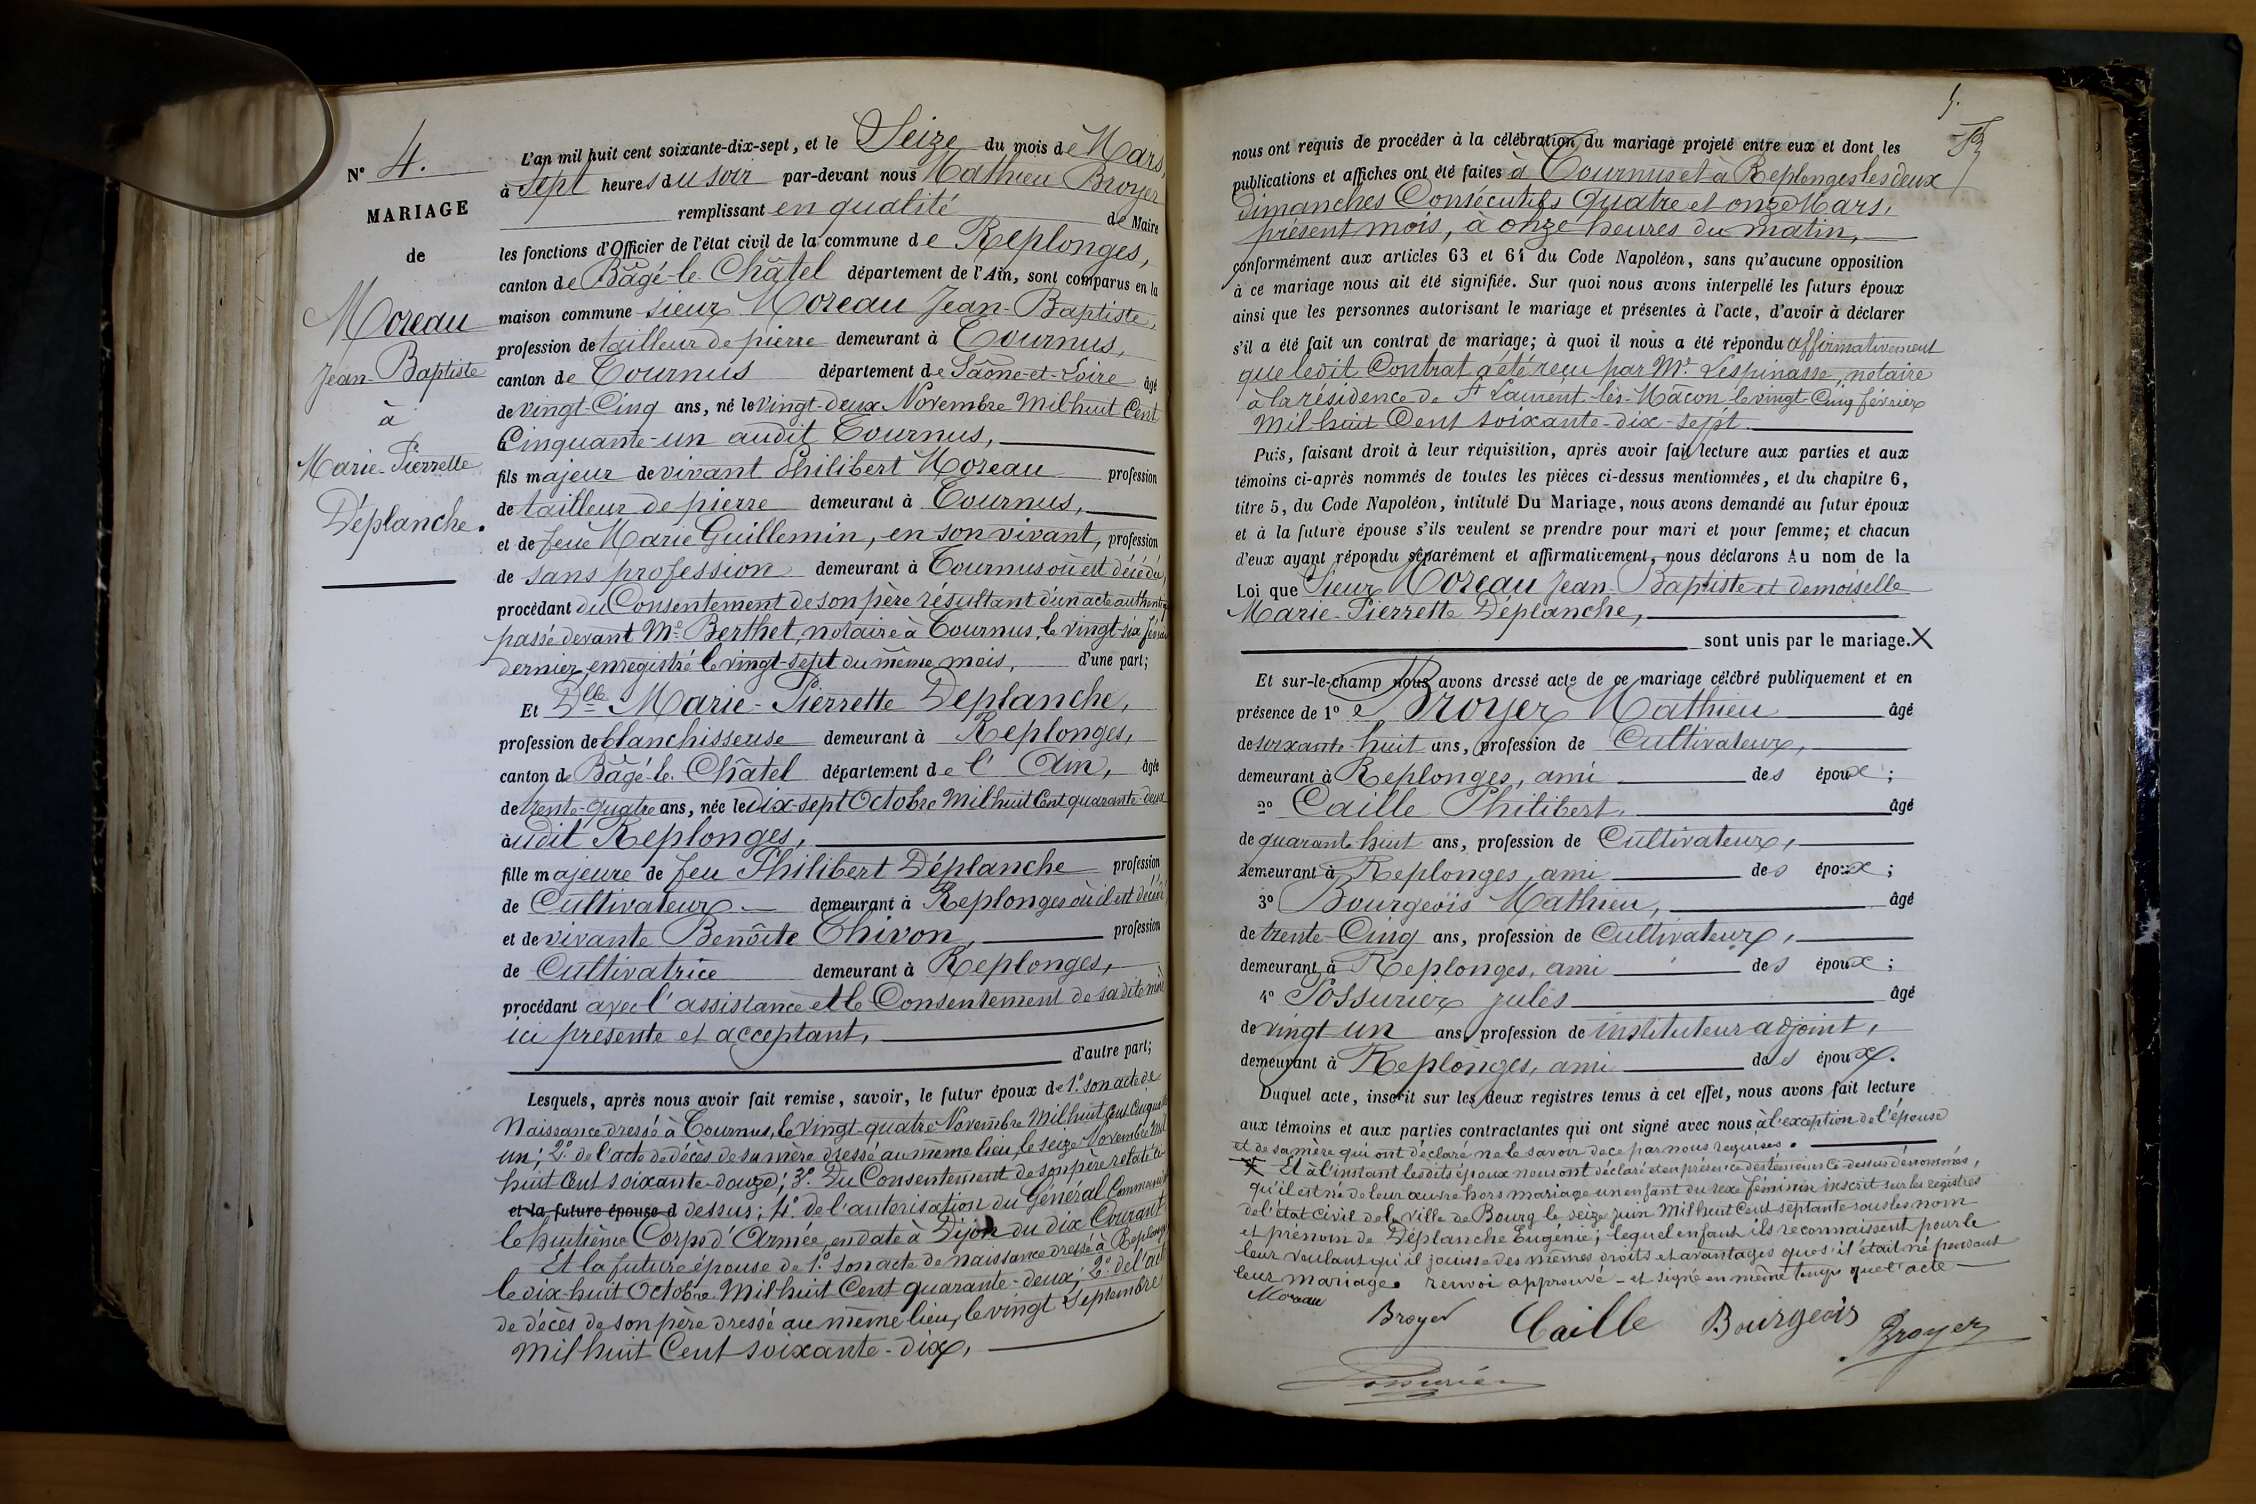 N° 4.
MARIAGE
de
Moreau
Jean-Baptiste
à
Marie-Pierrette
Déplanche.
L'an mil huit cent soixante-dix-sept, et le Seize du mois de Mars,
à Sept heures du soir par-devant nous Mathieu Broyer
remplissant en qualité de Maire
les fonctions d'Officier de l'état civil de la commune de Replonges,
canton de Bâgé-le-Châtel département de l'Ain, sont comparus en la
maison commune sieur Moreau Jean-Baptiste,
profession de tailleur de pierre demeurant à Tournus,
canton de Tournus département de Saône-et-Loire âgé
de vingt-Cinq ans, né le vingt-deux Novembre Mil huit Cent
Cinquante-un audit Tournus,
fils majeur de vivant Philibert Moreau profession
de tailleur de pierre demeurant à Tournus,
et de feue Marie Guillemin, en son vivant, profession
de sans profession demeurant à Tournus où est décédée,
procédant du Consentement de son père résultant d'un acte authentique
passé devant Me Berthet, notaire à Tournus, le vingt-six février
dernier, enregistré le vingt-sept du même mois, d'une part;
Et Dlle Marie-Pierrette Déplanche,
profession de blanchisseuse demeurant à Replonges,
canton de Bâgé-le-Châtel département de l'Ain, âgée
de trente-quatre ans, née le dix-sept Octobre Mil huit Cent quarante-deux
audit Replonges,
fille majeure de feu Philibert Déplanche profession
de Cultivateur demeurant à Replonges où il est décédé
et de vivante Benoîte Thivon, profession
de Cultivatrice demeurant à Replonges,
procédant avec l'assistance et le Consentement de sa dite mère
ici présente et acceptant,
d'autre part;
Lesquels, après nous avoir fait remise, savoir, le futur époux de 1° son acte de
Naissance dressé à Tournus, le vingt-quatre Novembre Mil huit Cent Cinquante
un; 2° de l'acte de décès de sa mère dressé au même lieu, le seize Novembre Mil
huit Cent soixante-douze; 3° Du Consentement de son père relaté ci-
et la future épouse d dessus; 4° de l'autorisation du Général Commandant
le huitième Corps d'Armée, en date à Dijon du dix Courant
Et la future épouse de 1° son acte de naissance dressé à Replonges
le dix-huit Octobre Mil huit Cent quarante-deux; 2° de l'acte
de décès de son père dressé au même lieu, le vingt Septembre
Mil huit Cent soixante-dix,
5.
nous ont requis de procéder à la célébration du mariage projeté entre eux et dont les
publications et affiches ont été faites à Tournus et à Replonges les deux
Dimanches Consécutifs quatre et onze Mars,
présent mois, à onze heures du matin,
conformément aux articles 63 et 64 du Code Napoléon, sans qu'aucune opposition
à ce mariage nous ait été signifiée. Sur quoi nous avons interpellé les futurs époux
ainsi que les personnes autorisant le mariage et présentes à l'acte, d'avoir à déclarer
s'il a été fait un contrat de mariage; à quoi il nous a été répondu affirmativement
que ledit Contrat a été reçu par Me Lespinasse, notaire
à la résidence de St Laurent-lès-Mâcon le vingt-Cinq février
Mil huit Cent soixante-dix-sept
Puis, faisant droit à leur réquisition, après avoir fait lecture aux parties et aux
témoins ci-après nommés de toutes les pièces ci-dessus mentionnées, et du chapitre 6,
titre 5, du Code Napoléon, intitulé Du Mariage, nous avons demandé au futur époux
et à la future épouse s'ils veulent se prendre pour mari et pour femme; et chacun
d'eux ayant répondu séparément et affirmativement, nous déclarons Au nom de la
Loi que Sieur Moreau Jean-Baptiste et demoiselle
Marie-Pierrette Déplanche,
sont unis par le mariage. X
Et sur-le-champ nous avons dressé acte de ce mariage célébré publiquement et en
présence de 1° Broyer Mathieu âgé
de soixante-huit ans, profession de Cultivateur,
demeurant à Replonges, ami des époux;
2° Caille Philibert, âgé
de quarante huit ans, profession de Cultivateur,
demeurant à Replonges, ami des époux;
3° Bourgeois Mathieu, âgé
de trente-Cinq ans, profession de Cultivateur,
demeurant à Replonges, ami des époux;
4° Possurier Jules âgé
de vingt un ans, profession de instituteur adjoint,
demeurant à Replonges, ami des époux.
Duquel acte, inscrit sur les deux registres tenus à cet effet, nous avons fait lecture
aux témoins et aux parties contractantes qui ont signé avec nous à l'exception de l'épouse
et de sa mère qui ont déclaré ne le savoir de ce par nous requises.
X Et à l'instant lesdits époux nous ont déclaré et en présence des témoins ci-dessus dénommés,
qu'il est né de leur œuvre hors mariage un enfant du sexe féminin inscrit sur les registres
de l'état civil de la ville de Bourg le seize juin Mil huit Cent septante sous les nom
et prénom de Déplanche Eugénie; lequel enfant ils reconnaissent pour le
leur voulant qu'il jouisse des mêmes droits et avantages que s'il était né pendant
leur mariage. renvoi approuvé - et signé en même temps que l'acte
Moreau Broyer Caille Bourgeois Broyer
Possurier